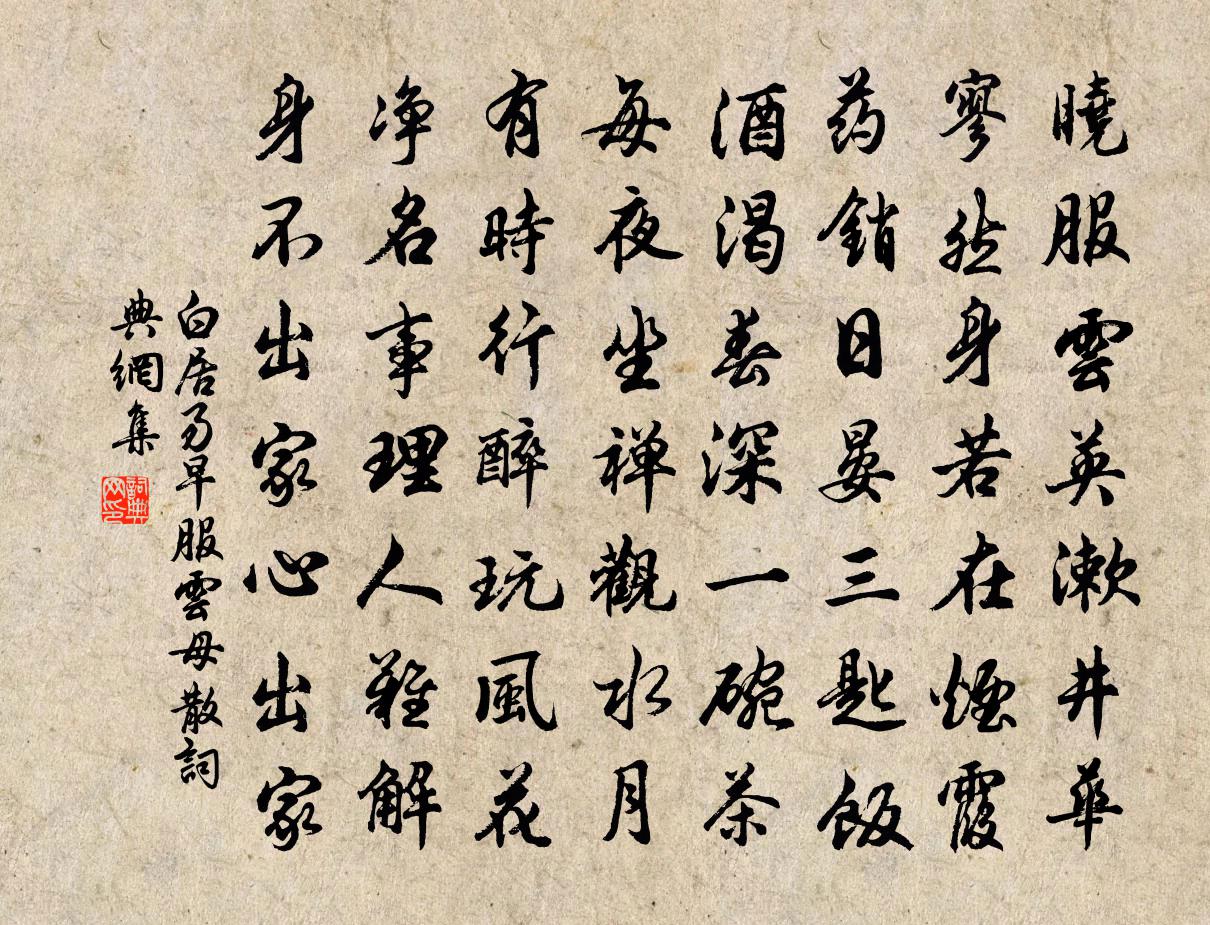 曉服雲英漱井華
寥然身若在煙霞
药銷日晏三匙飯
酒渴春深一碗茶
每夜坐禅觀水月
有時行醉玩風花
净名事理人難解
身不出家心出家
白居易早服雲母散詞
典網集
詞典
网印